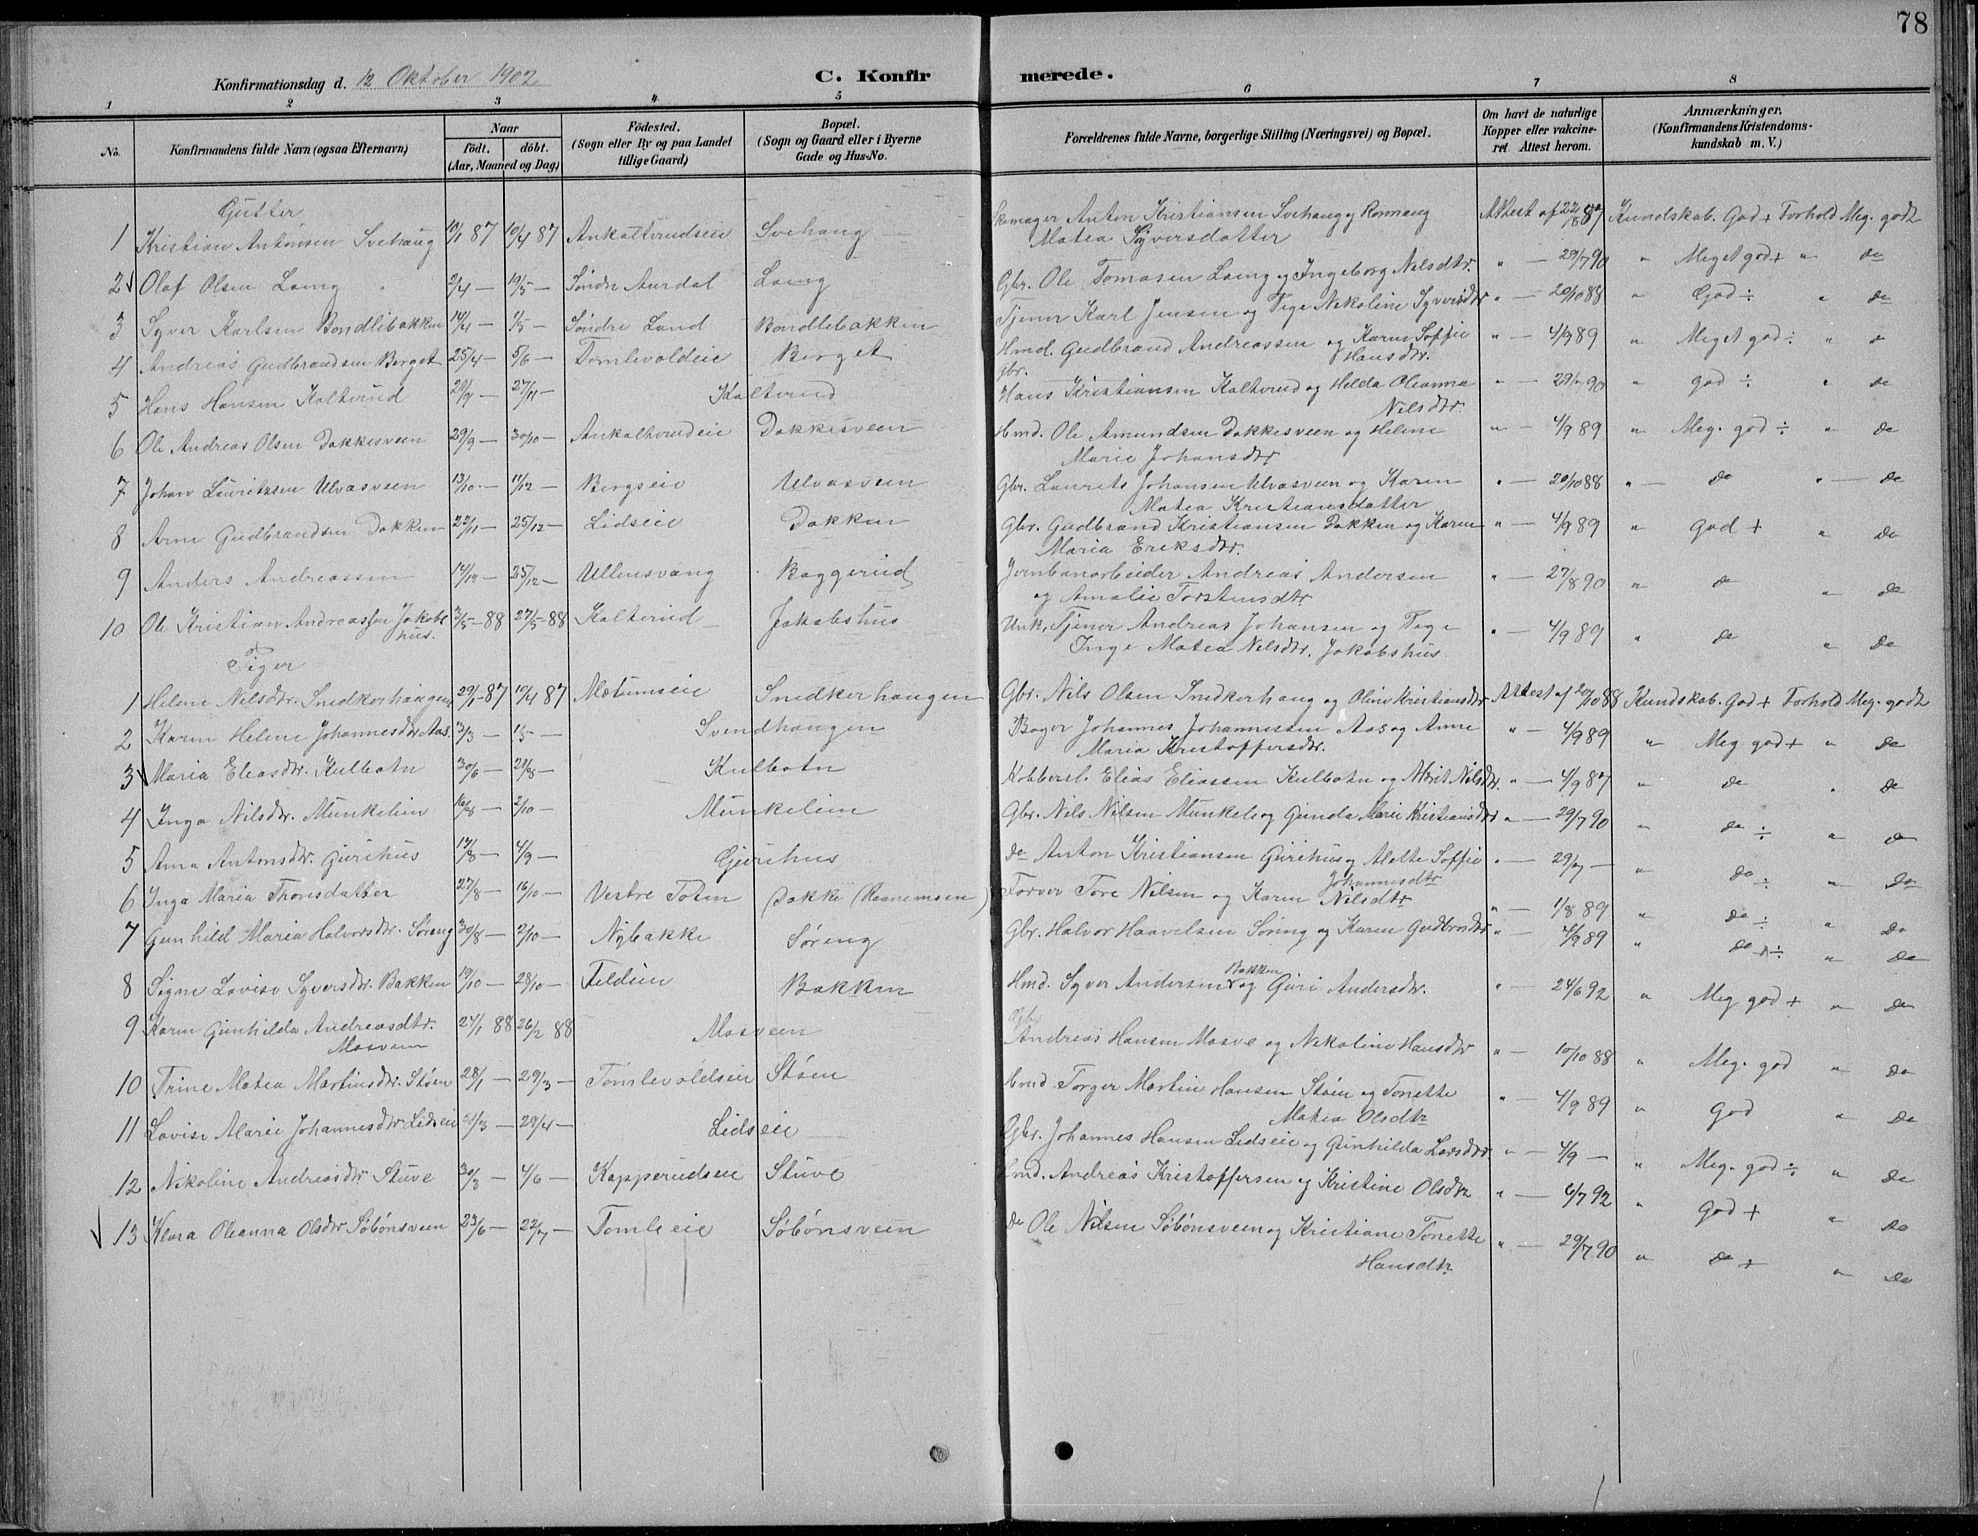 78
Konfirmationsdag d. 12 Oktober 1902
C. Konfirmerede.
1 2 3 4 5 6 7 8
No. Konfirmandens fulde Navn (ogsaa Efternavn) Naar Født. døbt. (Aar, Maaned og Dag) Fødested. (Sogn eller By og paa Landet tillige Gaard) Bopæl. (Sogn og Gaard eller i Byerne Gade og Hus-No. Forældrenes fulde Navne, borgerlige Stilling (Næringsvei) og Bopæl. Om havt de naturlige Kopper eller vakcineret. Attest herom. Anmærkninger. (Konfirmandens Kristendomskundskab m. V.)
Gutter
1 Kristian Antonsen Svehaug 10/1 87 10/4 87 Ankalterudseie Svehaug Skomager Anton Kristiansen Svehaug og Matea Syversdatter Attest af 22/8 87 Kundskab. God + Forhold Meg. godt
2 Olaf Olsen Laeng 2/4 — 19/5 — Søndre Aurdal Laeng Gbr. Ole Tomasen Laeng og Ingeborg Nilsdtr. " — 29/7 90 " Meget god + " do
3 Syver Karlsen Bondlibakken 14/4 — 1/5 — Søndre Land Bondlebakken Tjener Karl Jensen og Pige Nikoline Syversdtr " — 20/10 88 " God ÷ " do
4 Andreas Gudbrandsen Berget 25/4 — 5/6 — Tomlevoldeie Berget Hmd. Gudbrand Andreassen og Karen Soffie Hansdtr. " — 4/9 89 " Meget god ÷ " d
5 Hans Hansen Kalterud 20/9 — 27/11 — Kalterud Gbr. Hans Kristiansen Kalterud og Helda Oleanna Nilsdtr. " — 29/7 90 " god ÷ " do
6 Ole Andreas Olsen Dokkesveen 29/9 — 30/10 — Ankalterudeie Dokkesveen Hmd. Ole Amundsen Dokkesveen og Helene Marie Johansdtr. " — 4/9 89 " Meg. god ÷ " do
7 Johan Lauritzsen Ulvasveen 13/10 — 11/12 — Bergseie Ulvasveen Gbr. Laurits Johansen Ulvasveen og Karen Matea Kristiansdatter " — 20/10 88 " — do " — do
8 Arne Gudbrandsen Dokken 22/11 — 25/12 — Lidseie Dokken Gbr. Gudbrand Kristiansen Dokken og Karen Maria Eriksdtr. " — 4/9 89 " god + " do
9 Anders Andreassen 14/12 — 25/12 — Ullensvang Baggerud Jernbanarbeider Andreas Andersen og Amalie Torstensdtr " — 27/8 90 " do " do
10 Ole Kristian Andreassen Jakobshus. 3/5 — 88 27/5 — 88 Kalterud Jakobshus Unk. Tjener Andreas Johansen og Pige Inge Matea Nilsdtr. Jakobshus " — 4/9 89 " do " do
Piger
1 Helene Nilsdtr. Snedkerhaugen 29/1 — 87 10/4 87 Mætumseie Snedkerhaugen Gbr. Nils Olsen Snedkerhaug og Oline Kristiansdtr Attest af 20/10 88 Kundskab. God + Forhold Meg. godt
2 Karen Helene Johannesdtr Aas. 3/3 — 1/5 — Svendhaugen Bager Johannes Johannessen Aas og Anne Maria Kristoffersdtr. " — 4/9 89 " Meg god + " do
3 Maria Eliasdtr. Kulbotn 30/6 — 29/8 — Kulbotn Kobbersl. Elias Eliassen Kulbotn og Marit Nilsdtr. " — 4/9 87 " do " do
4 Inga Nilsdtr. Munkelien 16/8 — 2/10 — Munkelien Gbr. Nils Nilsen Munkelie og Gunda Marie Kristiansdtr " — 29/7 90 " do ÷ " do
5 Anna Antonsdtr. Gurihus 14/8 — 4/9 — Gurihus do Anton Kristiansen Gurihus og Alette Soffie Johannesdtr " — 29/7 — " do ÷ " do
6 Inga Maria Thorsdatter 27/8 — 16/10 — Vestre Toten Dokka Farver Tore Nilsen og Karen Nilsdtr " — 1/8 89 " do ÷ " do
7 Gunhild Maria Halvorsdtr. Søreng 30/8 — 2/10 — Nybakke Søreng Gbr. Halvor Haavelsen Søreng og Karen Gudbrsdtr " — 4/9 89 " do ÷ " do
8 Signe Lovise Syversdtr. Bakken 19/10 — 28/10 — Feldeie Bakken Hmd. Syver Andersen Bakken og Guri Andersdtr. " — 24/6 92 " Meg god + " do
9 Karen Gunhilda Andreasdtr. Mosveen 24/1 88 26/2 88 Mosveen Andreas Hansen Mosve og Nikoline Hansdtr " — 10/10 88 " Meg. god " do
10 Trine Matea Martinsdtr. Støen 28/1 — 29/3 — Tomlevoldseie Støen Hmd. Torger Martin Hansen Støen og Tonette Matea Olsdtr " — 4/9 89 " God " do
11 Lovise Marie Johannesdtr Lidseie 21/3 — 29/4 — Lidseie Gbr. Johannes Hansen Lidseie og Gunhilda Larsdtr " — 4/9 — " Meg. god ÷ " do
12 Nikoline Andreasdtr Stuve 30/3 — 4/6 — Kopperudseie Stuve Hmd. Andreas Kristoffersen og Kristine Olsdtr " — 6/7 92 " God + " do
13 Klara Oleanna Olsdtr Søbønsveen 23/6 — 22/7 — Tomleeie Søbønsveen do Ole Nilsen Søbønsveen og Kristiane Tonette Hansdtr. " — 29/7 90 " do + " do